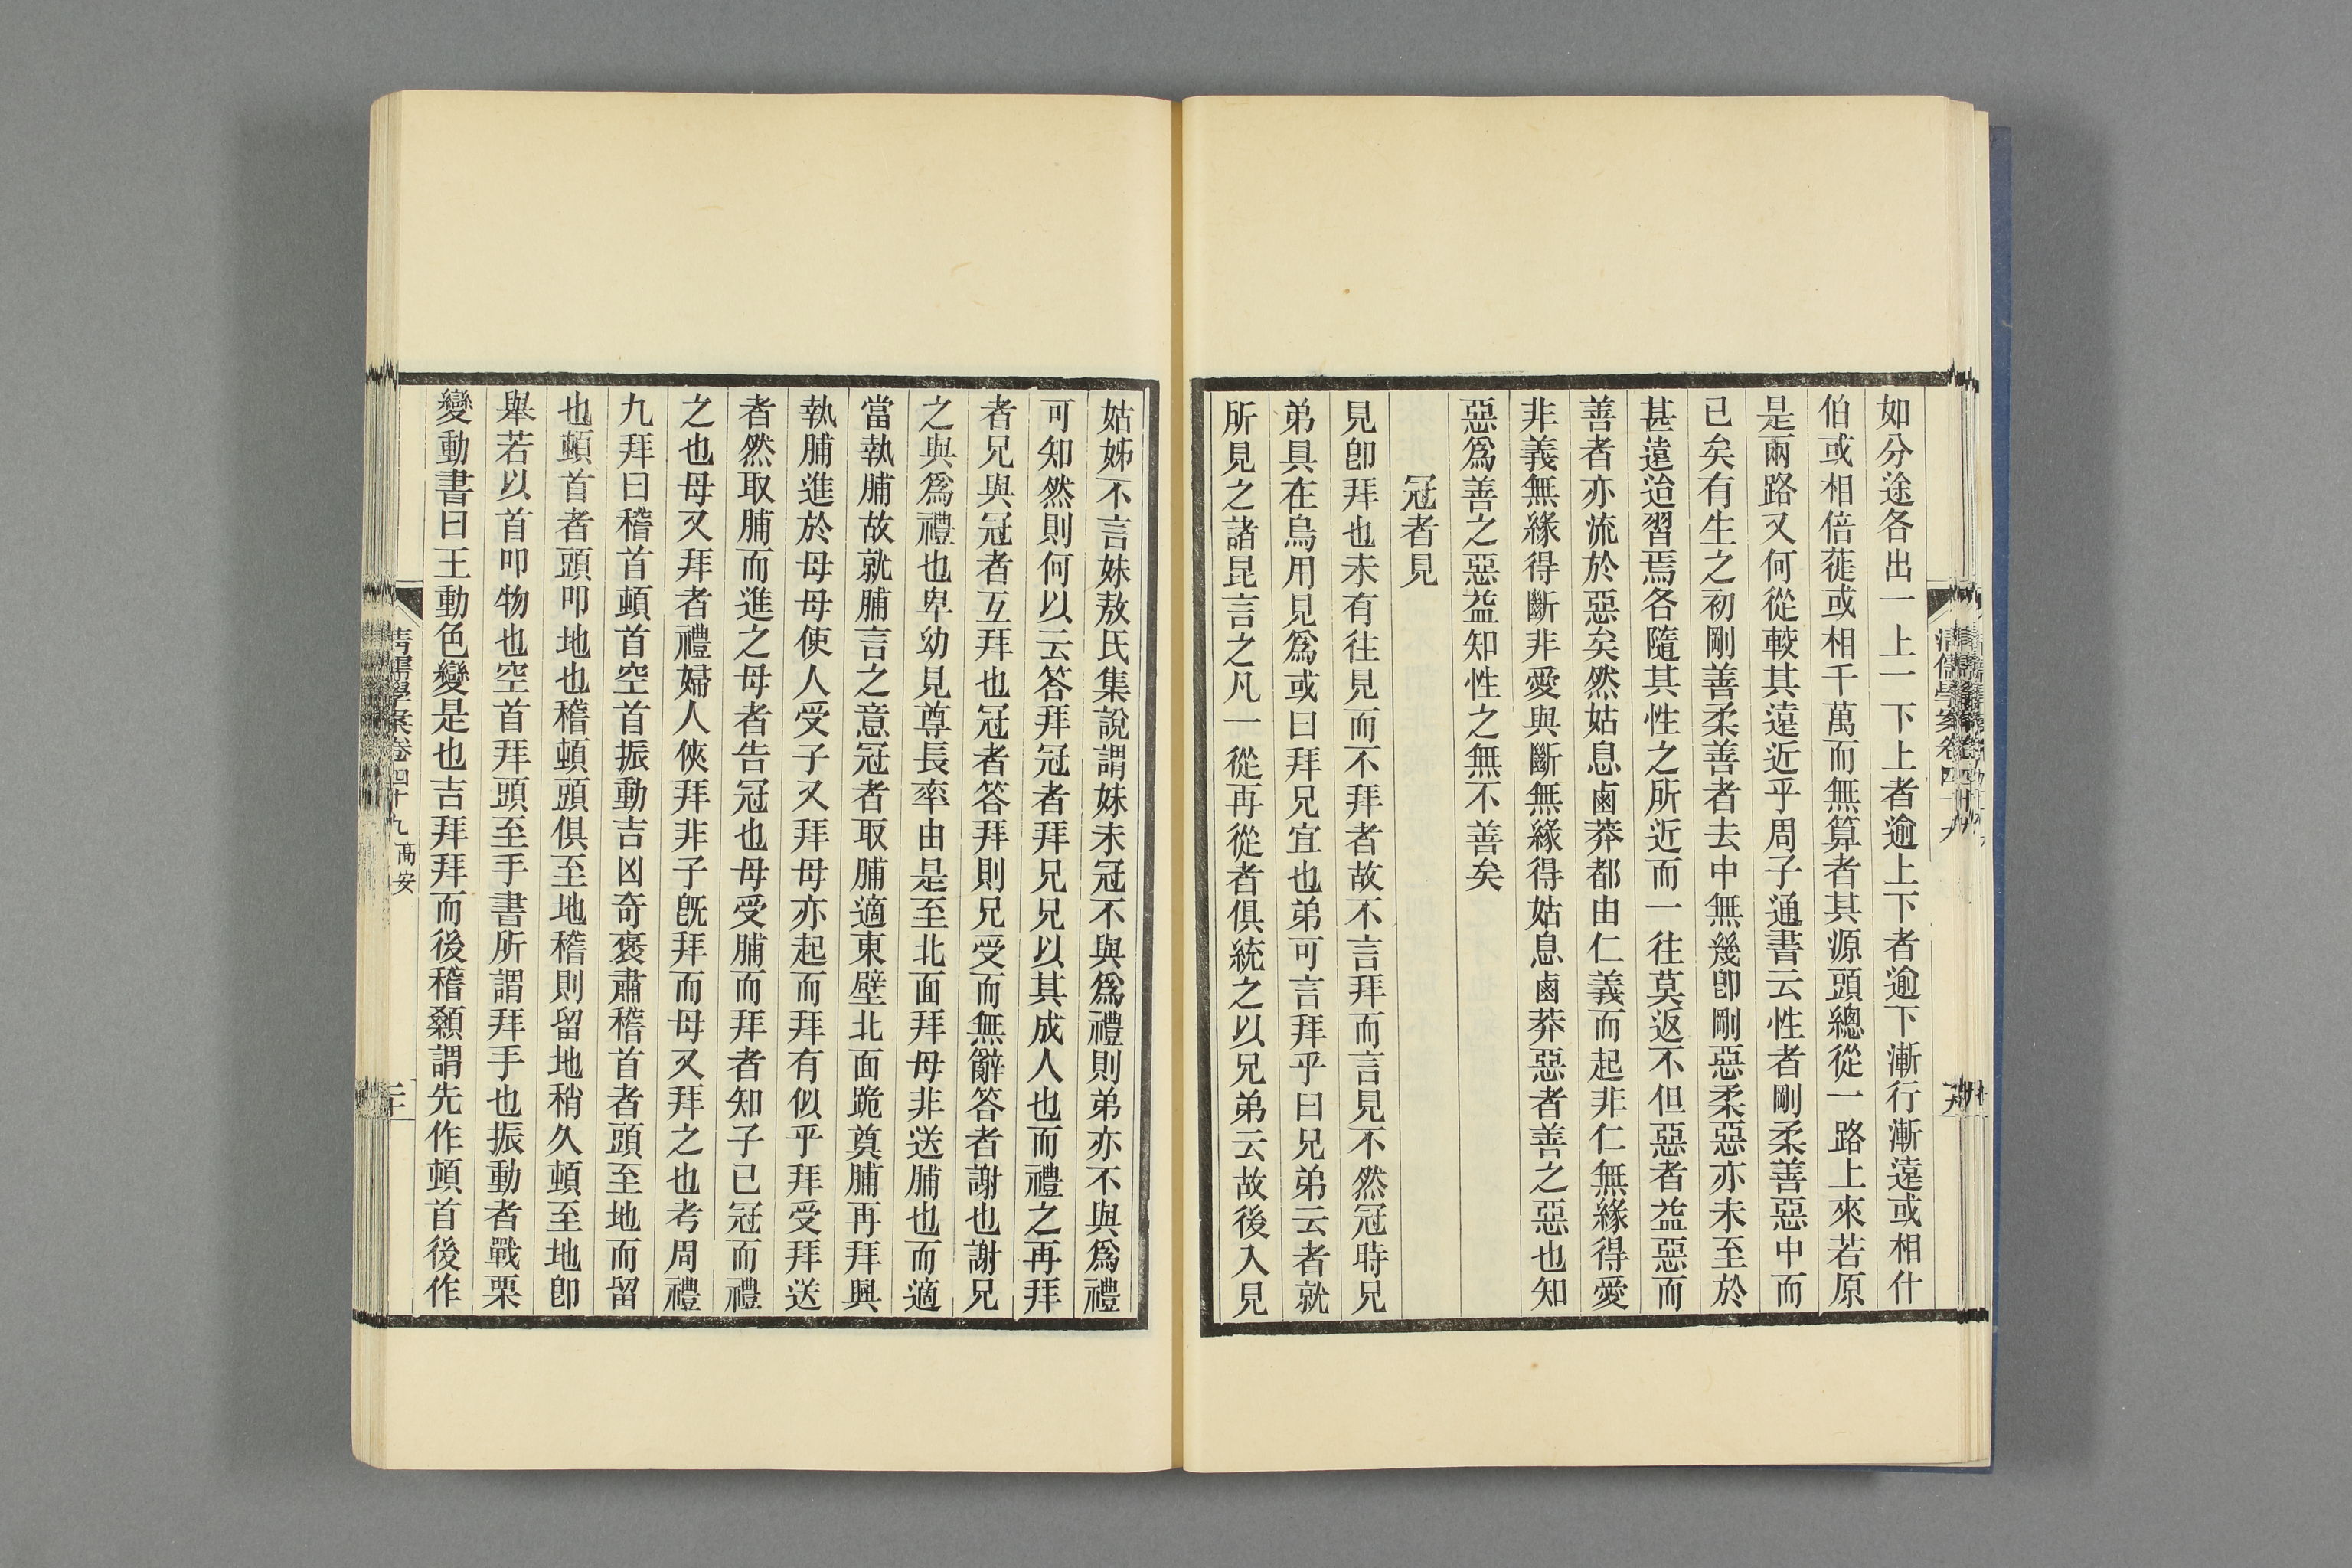 如分途各出一上一下上者逾上下者逾下漸行漸遠或相什
伯或相倍蓰或相千萬而無算者其源頭總從一路上來若原
是兩路又何從較其遠近乎周子通書云性者剛柔善惡中而
已矣有生之初剛善柔善者去中無幾卽剛惡柔惡亦未至於
甚遠迨習焉各隨其性之所近而一往莫返不但惡者益惡而
善者亦流於惡矣然姑息鹵莽都由仁義而起非仁無緣得愛
非義無緣得斷非愛與斷無緣得姑息鹵莽惡者善之惡也知
惡爲善之惡益知性之無不善矣
冠者見
見卽拜也未有往見而不拜者故不言拜而言見不然冠時兄
弟具在烏用見爲或曰拜兄宜也弟可言拜乎曰兄弟云者就
所見之諸昆言之凡一從再從者俱統之以兄弟云故後入見
姑姊不言妹敖氏集說謂妹未冠不與爲禮則弟亦不與爲禮
可知然則何以云答拜冠者拜兄兄以其成人也而禮之再拜
者兄與冠者互拜也冠者答拜則兄受而無辭答者謝也謝兄
之與爲禮也卑幼見尊長率由是至北面拜母非送脯也而適
當執脯故就脯言之意冠者取脯適東壁北面跪奠脯再拜興
執脯進於母母使人受子又拜母亦起而拜有似乎拜受拜送
者然取脯而進之母者告冠也母受脯而拜者知子已冠而禮
之也母又拜者禮婦人俠拜非子旣拜而母又拜之也考周禮
九拜曰稽首頓首空首振動吉凶奇褒肅稽首者頭至地而留
也頓首者頭叩地也稽頓頭俱至地稽則留地稍久頓至地卽
舉若以首叩物也空首拜頭至手書所謂拜手也振動者戰栗
變動書曰王動色變是也吉拜拜而後稽顙謂先作頓首後作
清儒學案卷四十九 高安